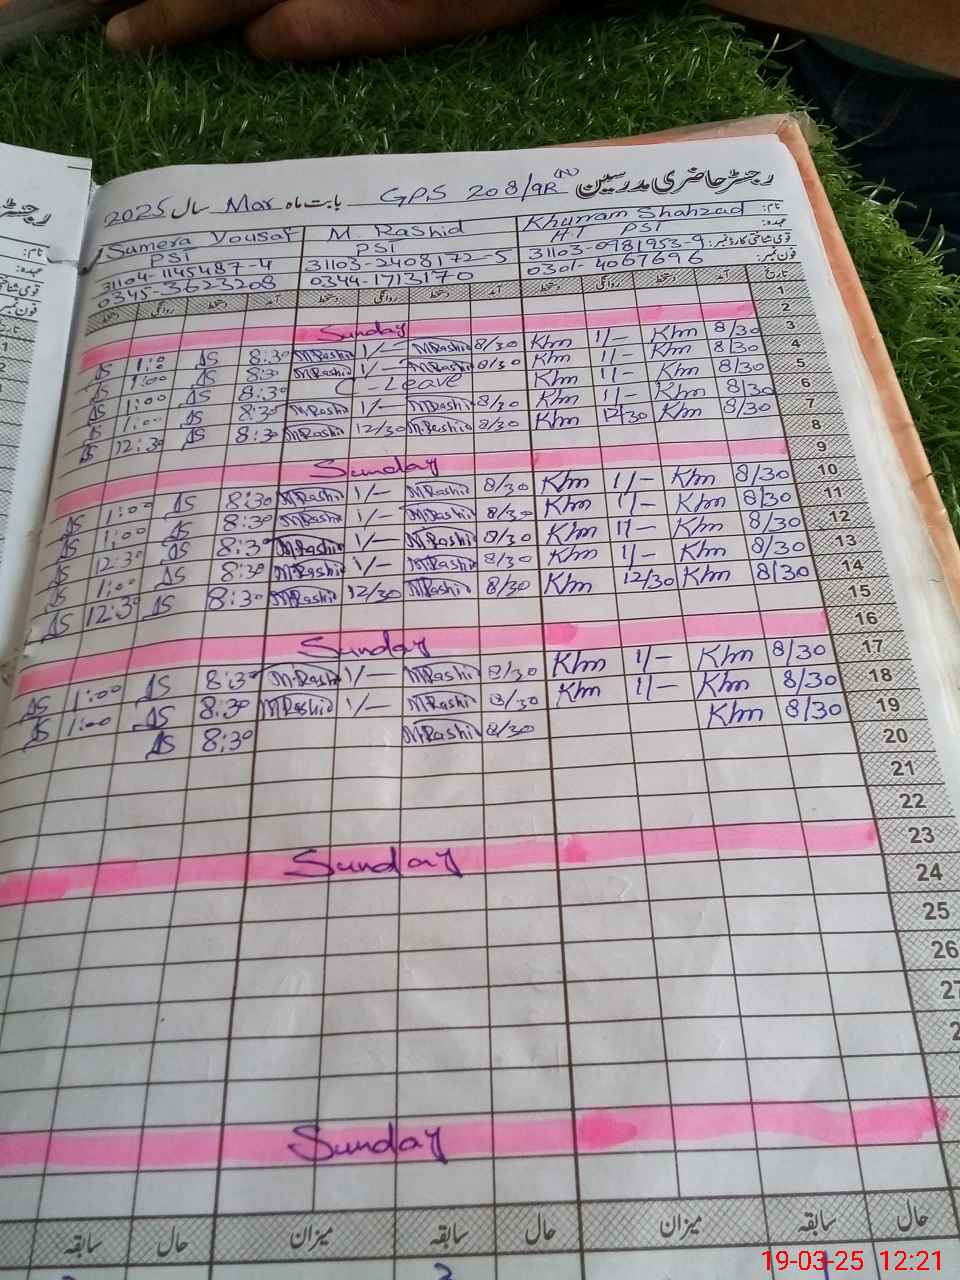 رجسٹر حاضری مدرسین GPS 208/9R (N) بابت ماہ Mar سال 2025
نام: Khurram Shahzad M. Rashid Samera Yousaf
عہدہ: HT PSI PSI PSI
قومی شناختی کارڈ نمبر: 31103-0981953-9 31103-2408172-5 31104-1145487-4
فون نمبر: 0301-4067696 0344-1713170 0345-3623208
تاریخ آمد دستخط روانگی دستخط آمد دستخط روانگی دستخط آمد دستخط روانگی دستخط
1
2 Sunday
3 8/30 Khm 1/- Khm 8/30 M.Rashid 1/- M.Rashid 8:30 AS 1:0 AS
4 8/30 Khm 1/- Khm 8/30 M.Rashid 1/- M.Rashid 8:30 AS 1:00 AS
5 8/30 Khm 1/- Khm C-Leave 8:30 AS 1:00 AS
6 8/30 Khm 1/- Khm 8/30 M.Rashid 1/- M.Rashid 8:30 AS 1:00 AS
7 8/30 Khm 12/30 Khm 8/30 M.Rashid 12/30 M.Rashid 8:30 AS 12:30 AS
8
9 Sunday
10 8/30 Khm 1/- Khm 8/30 M.Rashid 1/- M.Rashid 8:30 AS 1:00 AS
11 8/30 Khm 1/- Khm 8/30 M.Rashid 1/- M.Rashid 8:30 AS 1:00 AS
12 8/30 Khm 1/- Khm 8/30 M.Rashid 1/- M.Rashid 8:30 AS 12:30 AS
13 8/30 Khm 1/- Khm 8/30 M.Rashid 1/- M.Rashid 8:30 AS 1:00 AS
14 8/30 Khm 12/30 Khm 8/30 M.Rashid 12/30 M.Rashid 8:30 AS 12:30 AS
15
16 Sunday
17 8/30 Khm 1/- Khm 8/30 M.Rashid 1/- M.Rashid 8:30 AS 1:00 AS
18 8/30 Khm 1/- Khm 8/30 M.Rashid 1/- M.Rashid 8:30 AS 1:00 AS
19 8/30 Khm 8/30 M.Rashid 8:30 AS
20
21
22
23 Sunday
24
25
26
27
Sunday
حال سابقہ میزان حال سابقہ میزان حال سابقہ
19-03-25 12:21